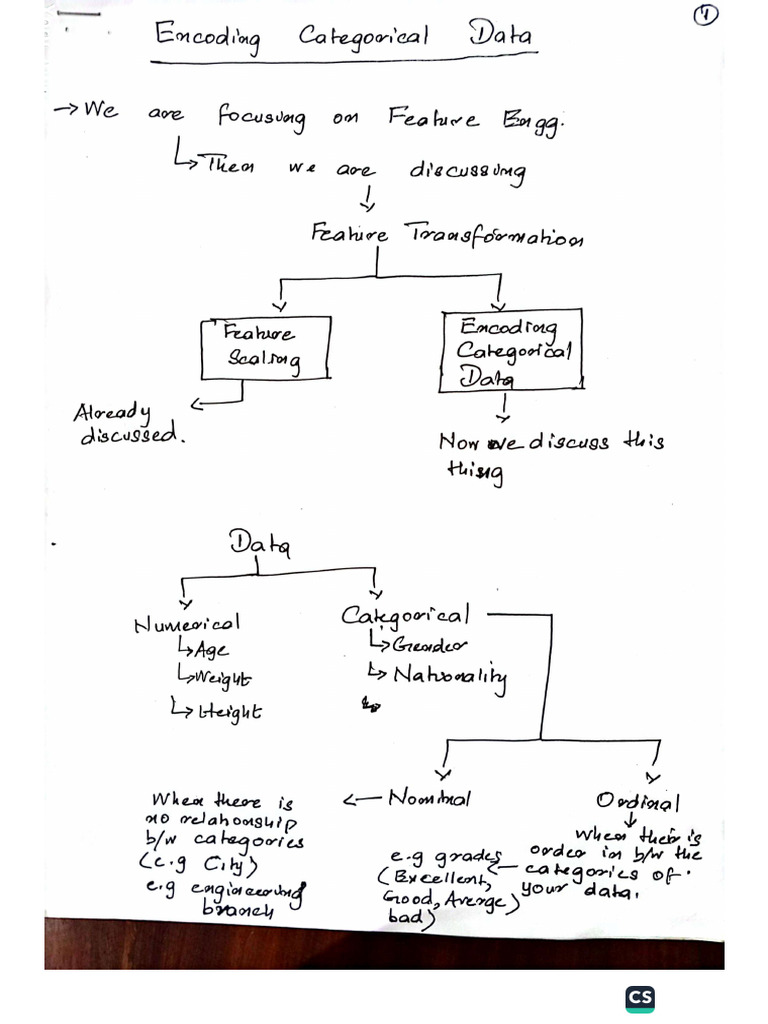 1
Encoding Categorical Data
→ We are focusing on Feature Engg.
↳ Then we are discussing
Feature Transformation
Feature
Scaling
Encoding
Categorical
Data
Already
discussed.
Now we discuss this
thing
Data
Numerical
↳ Age
↳ Weight
↳ Height
Categorical
↳ Gender
↳ Nationality
Nominal
When there is
no relationship
b/w categories
(e.g City)
e.g engineering
branch
Ordinal
when their is
order in b/w the
categories of
your data.
e.g grades
(Excellent,
Good, Averge,
bad)
CS